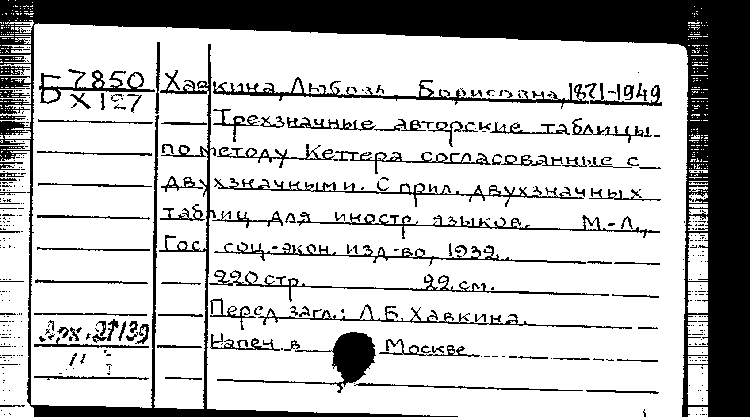 Б 7850
Х 127
Хавкина, Любовь Борисовна, 1871-1949
Трехзначные авторские таблицы
по методу Кеттера согласованные с
двухзначными. С прил. двухзначных
таблиц для иностр. языков. М.-Л.,
Гос. соц.-экон. изд-во, 1932.
220 стр. 22 см.
Перед загл.: Л.Б. Хавкина.
Напеч в Москве
Арх.